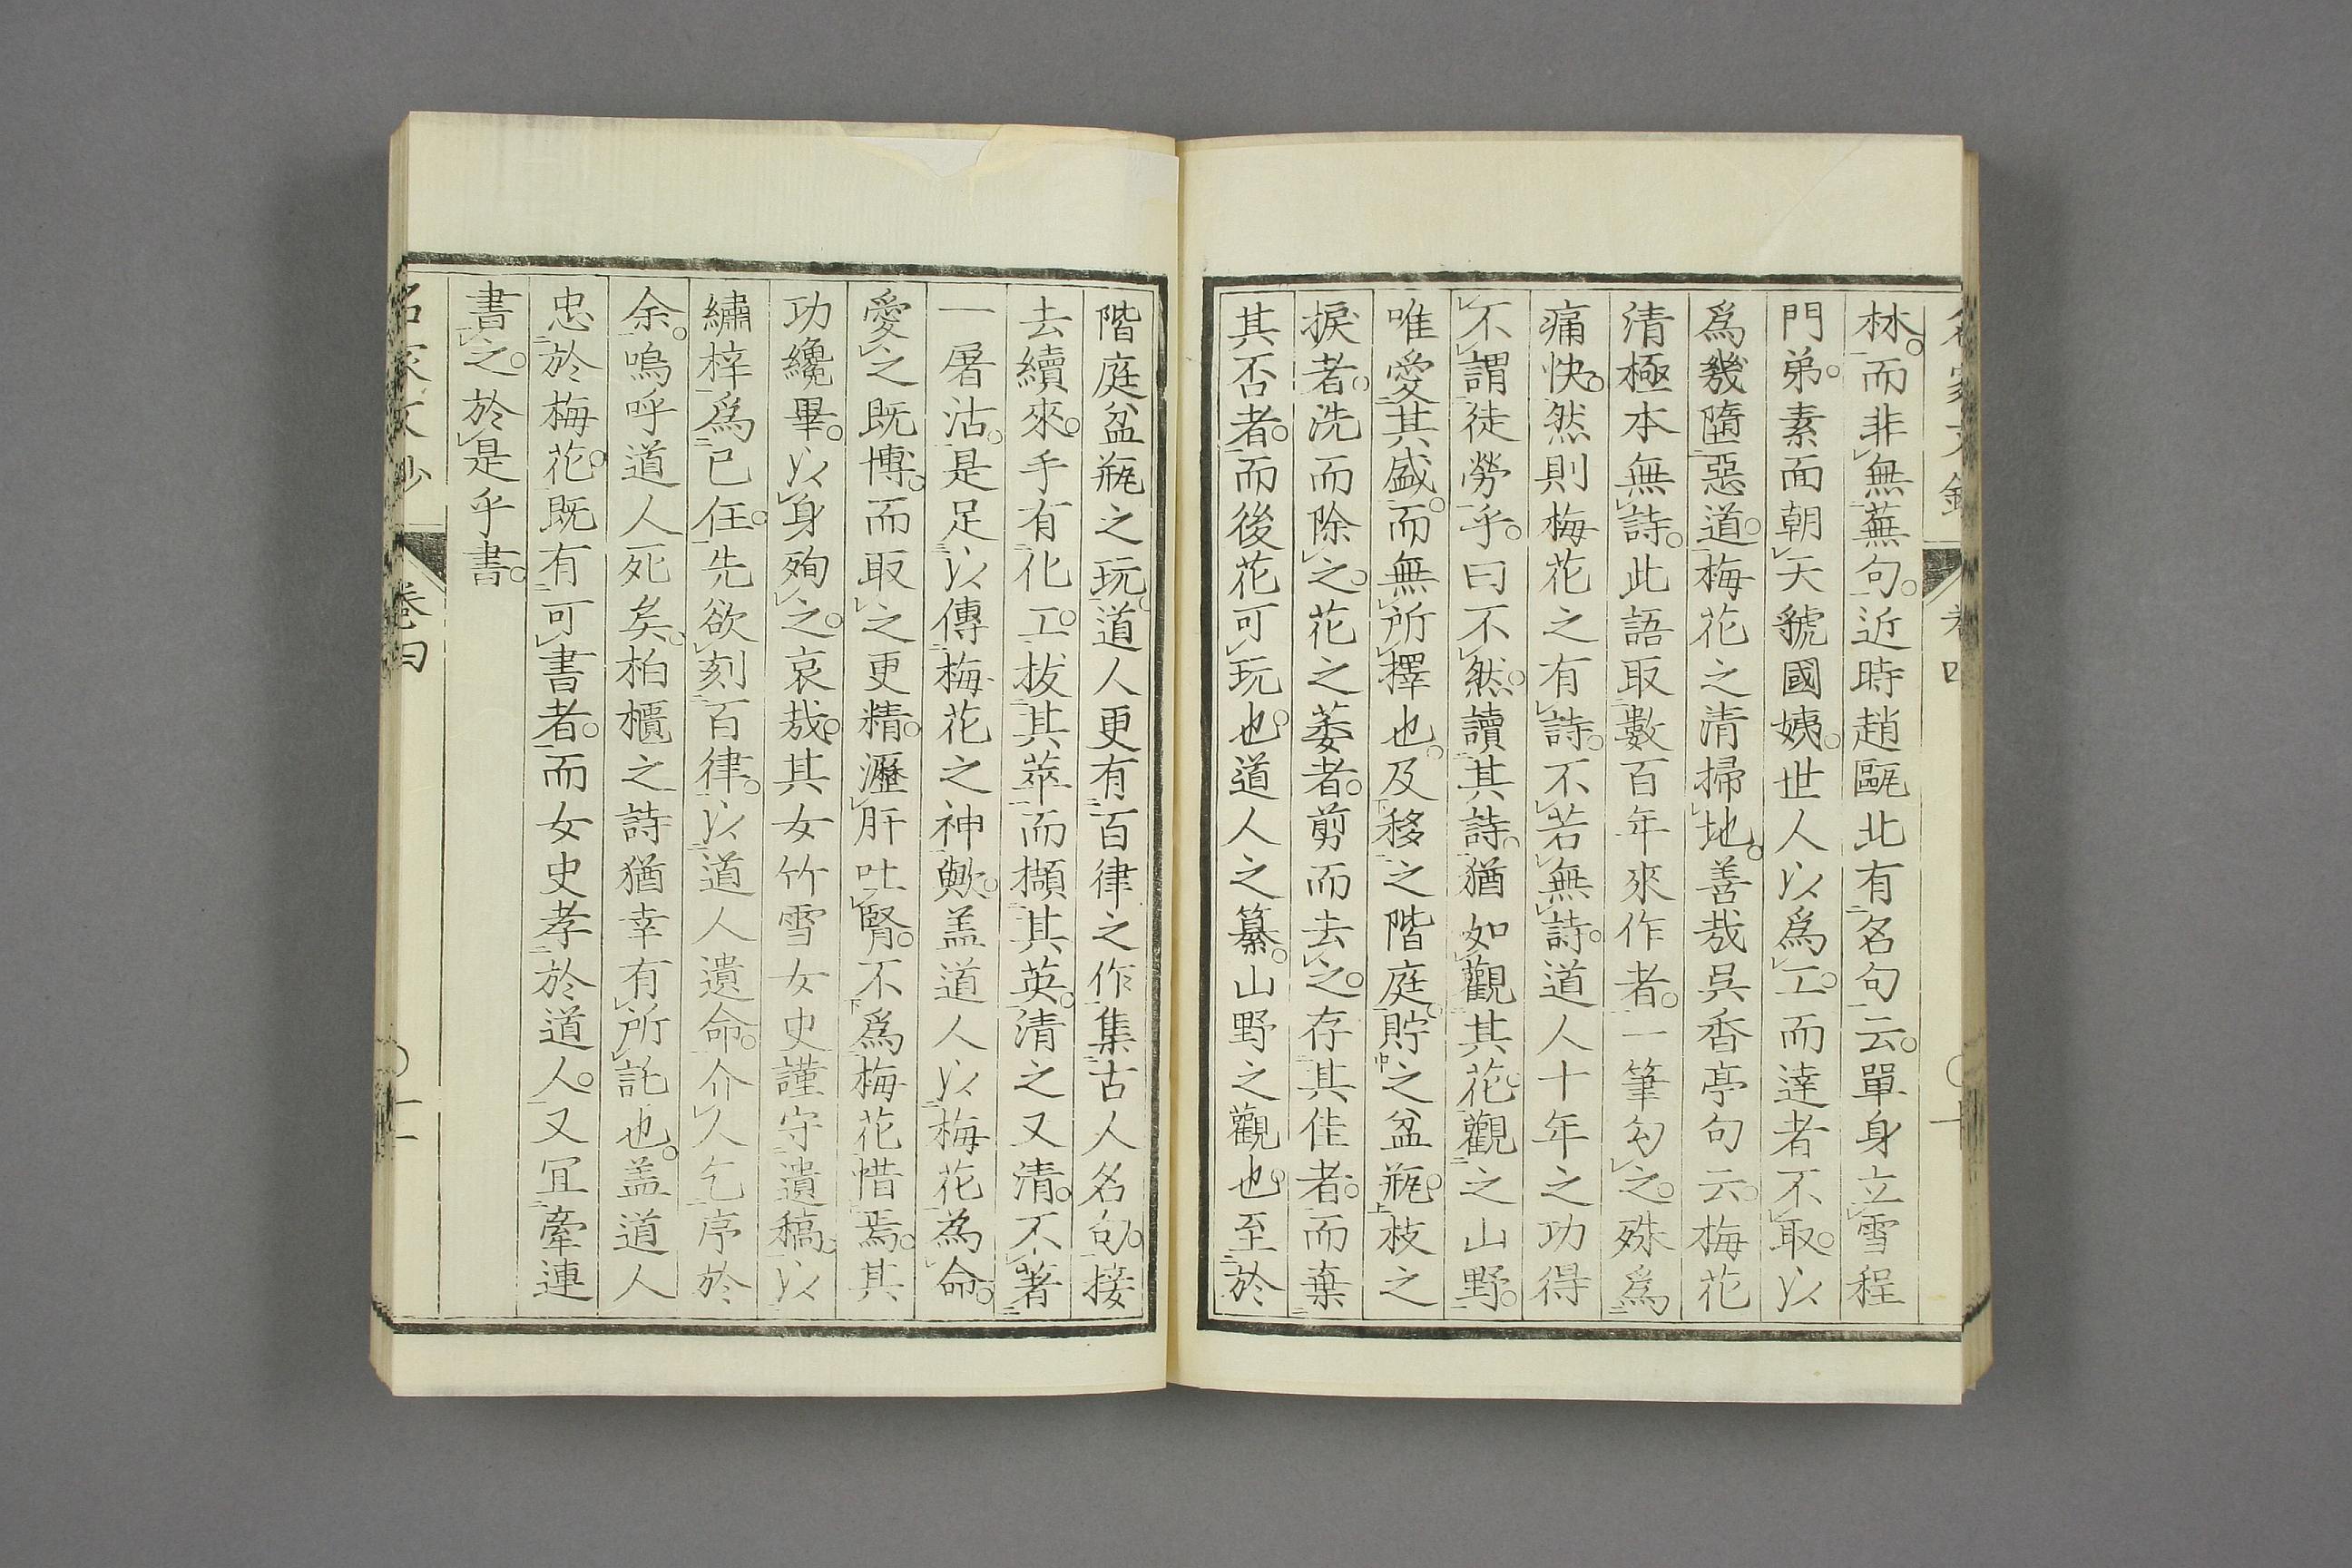 林。而非無蕪句。近時趙甌北有名句云。單身立雪程
門弟。素面朝天虢國姨。世人以爲工。而達者不取。以
爲幾墮惡道。梅花之清掃地。善哉吳香亭句云。梅花
清極本無詩。此語取數百年來作者。一筆勾之。殊爲
痛快。然則梅花之有詩。不若無詩。道人十年之功得
不謂徒勞乎。曰不然。讀其詩。猶如觀其花。觀之山野。
唯愛其盛。而無所擇也。及移之階庭。貯之盆瓶。枝之
捩者。洗而除之。花之萎者。剪而去之。存其佳者。而棄
其否者。而後花可玩也。道人之纂。山野之觀也。至於
階庭盆瓶之玩。道人更有百律之作。集古人名句。接
去續來。手有化工。拔其萃而擷其英。清之又清。不著
一屠沽。是足以傳梅花之神歟。盖道人以梅花為命。
愛之既博。而取之更精。瀝肝吐腎。不爲梅花惜焉。其
功纔畢。以身殉之。哀哉。其女竹雪女史謹守遺稿。以
繡梓爲已任。先欲刻百律。以道人遺命。介人乞序於
余。嗚呼道人死矣。柏櫃之詩猶幸有所託也。盖道人
忠於梅花。既有可書者。而女史孝於道人。又冝牽連
書之。於是乎書。
名家文鈔 卷四 〇十一